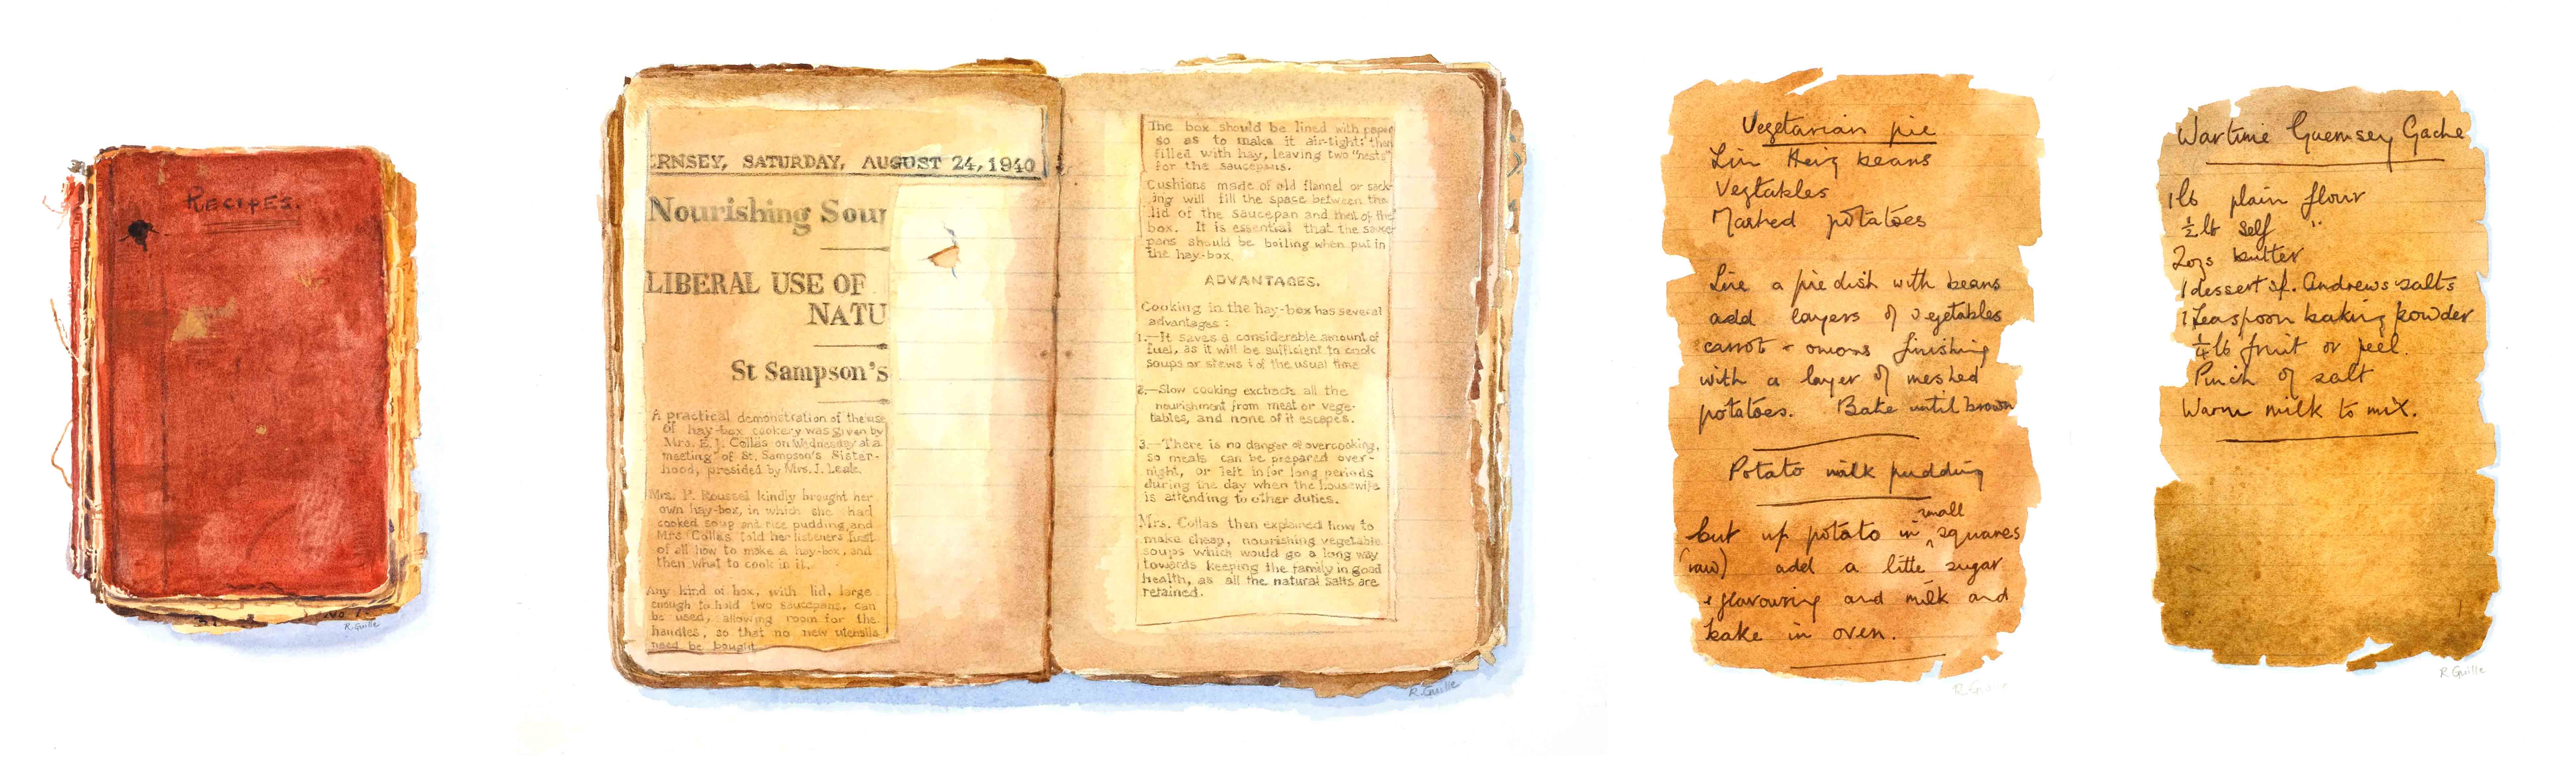 RECIPES.
R. Guille
ERNSEY, SATURDAY, AUGUST 24, 1940
Nourishing Soup
LIBERAL USE OF
NATU
St Sampson's
A practical demonstration of the use
of hay-box cookery was given by
Mrs. E. J. Collas on Wednesday at a
meeting of St. Sampson's Sister-
hood, presided by Mrs. J. Leale.
Mrs. P. Roussel kindly brought her
own hay-box, in which she had
cooked soup and rice pudding, and
Mrs Collas told her listeners first
of all how to make a hay-box, and
then what to cook in it.
Any kind of box, with lid, large
enough to hold two saucepans, can
be used, allowing room for the
handles, so that no new utensils
need be bought
The box should be lined with paper
so as to make it air-tight: then
filled with hay, leaving two "nests"
for the saucepans.
Cushions made of old flannel or sack-
ing will fill the space between the
lid of the saucepan and that of the
box. It is essential that the sauce-
pans should be boiling when put in
the hay-box.
ADVANTAGES.
Cooking in the hay-box has several
advantages:
1.—It saves a considerable amount of
fuel, as it will be sufficient to cook
soups or stews of the usual time
2.—Slow cooking exctracts all the
nourishment from meat or vege-
tables, and none of it escapes.
3.—There is no danger of overcooking,
so meals can be prepared over-
night, or left in for long periods
during the day when the housewife
is attending to other duties.
Mrs. Collas then explained how to
make cheap, nourishing vegetable
soups which would go a long way
towards keeping the family in good
health, as all the natural salts are
retained.
R. Guille
Vegetarian pie
Tin Heinz beans
Vegtables
Mashed potatoes
Line a pie dish with beans
add layers of vegetables
carrot + onions finishing
with a layer of meshed
potatoes. Bake until brown
Potato milk pudding
small
Cut up potato in ^ squares
(raw) add a little sugar
+ flavouring and milk and
bake in oven.
R. Guille
Wartime Guernsey Gache
1 lb plain flour
½ lb self "
2 ozs butter
1 dessert sp. Andrews salts
1 Teaspoon baking powder
¼ lb fruit or peel.
Pinch of salt
Warm milk to mix.
R. Guille